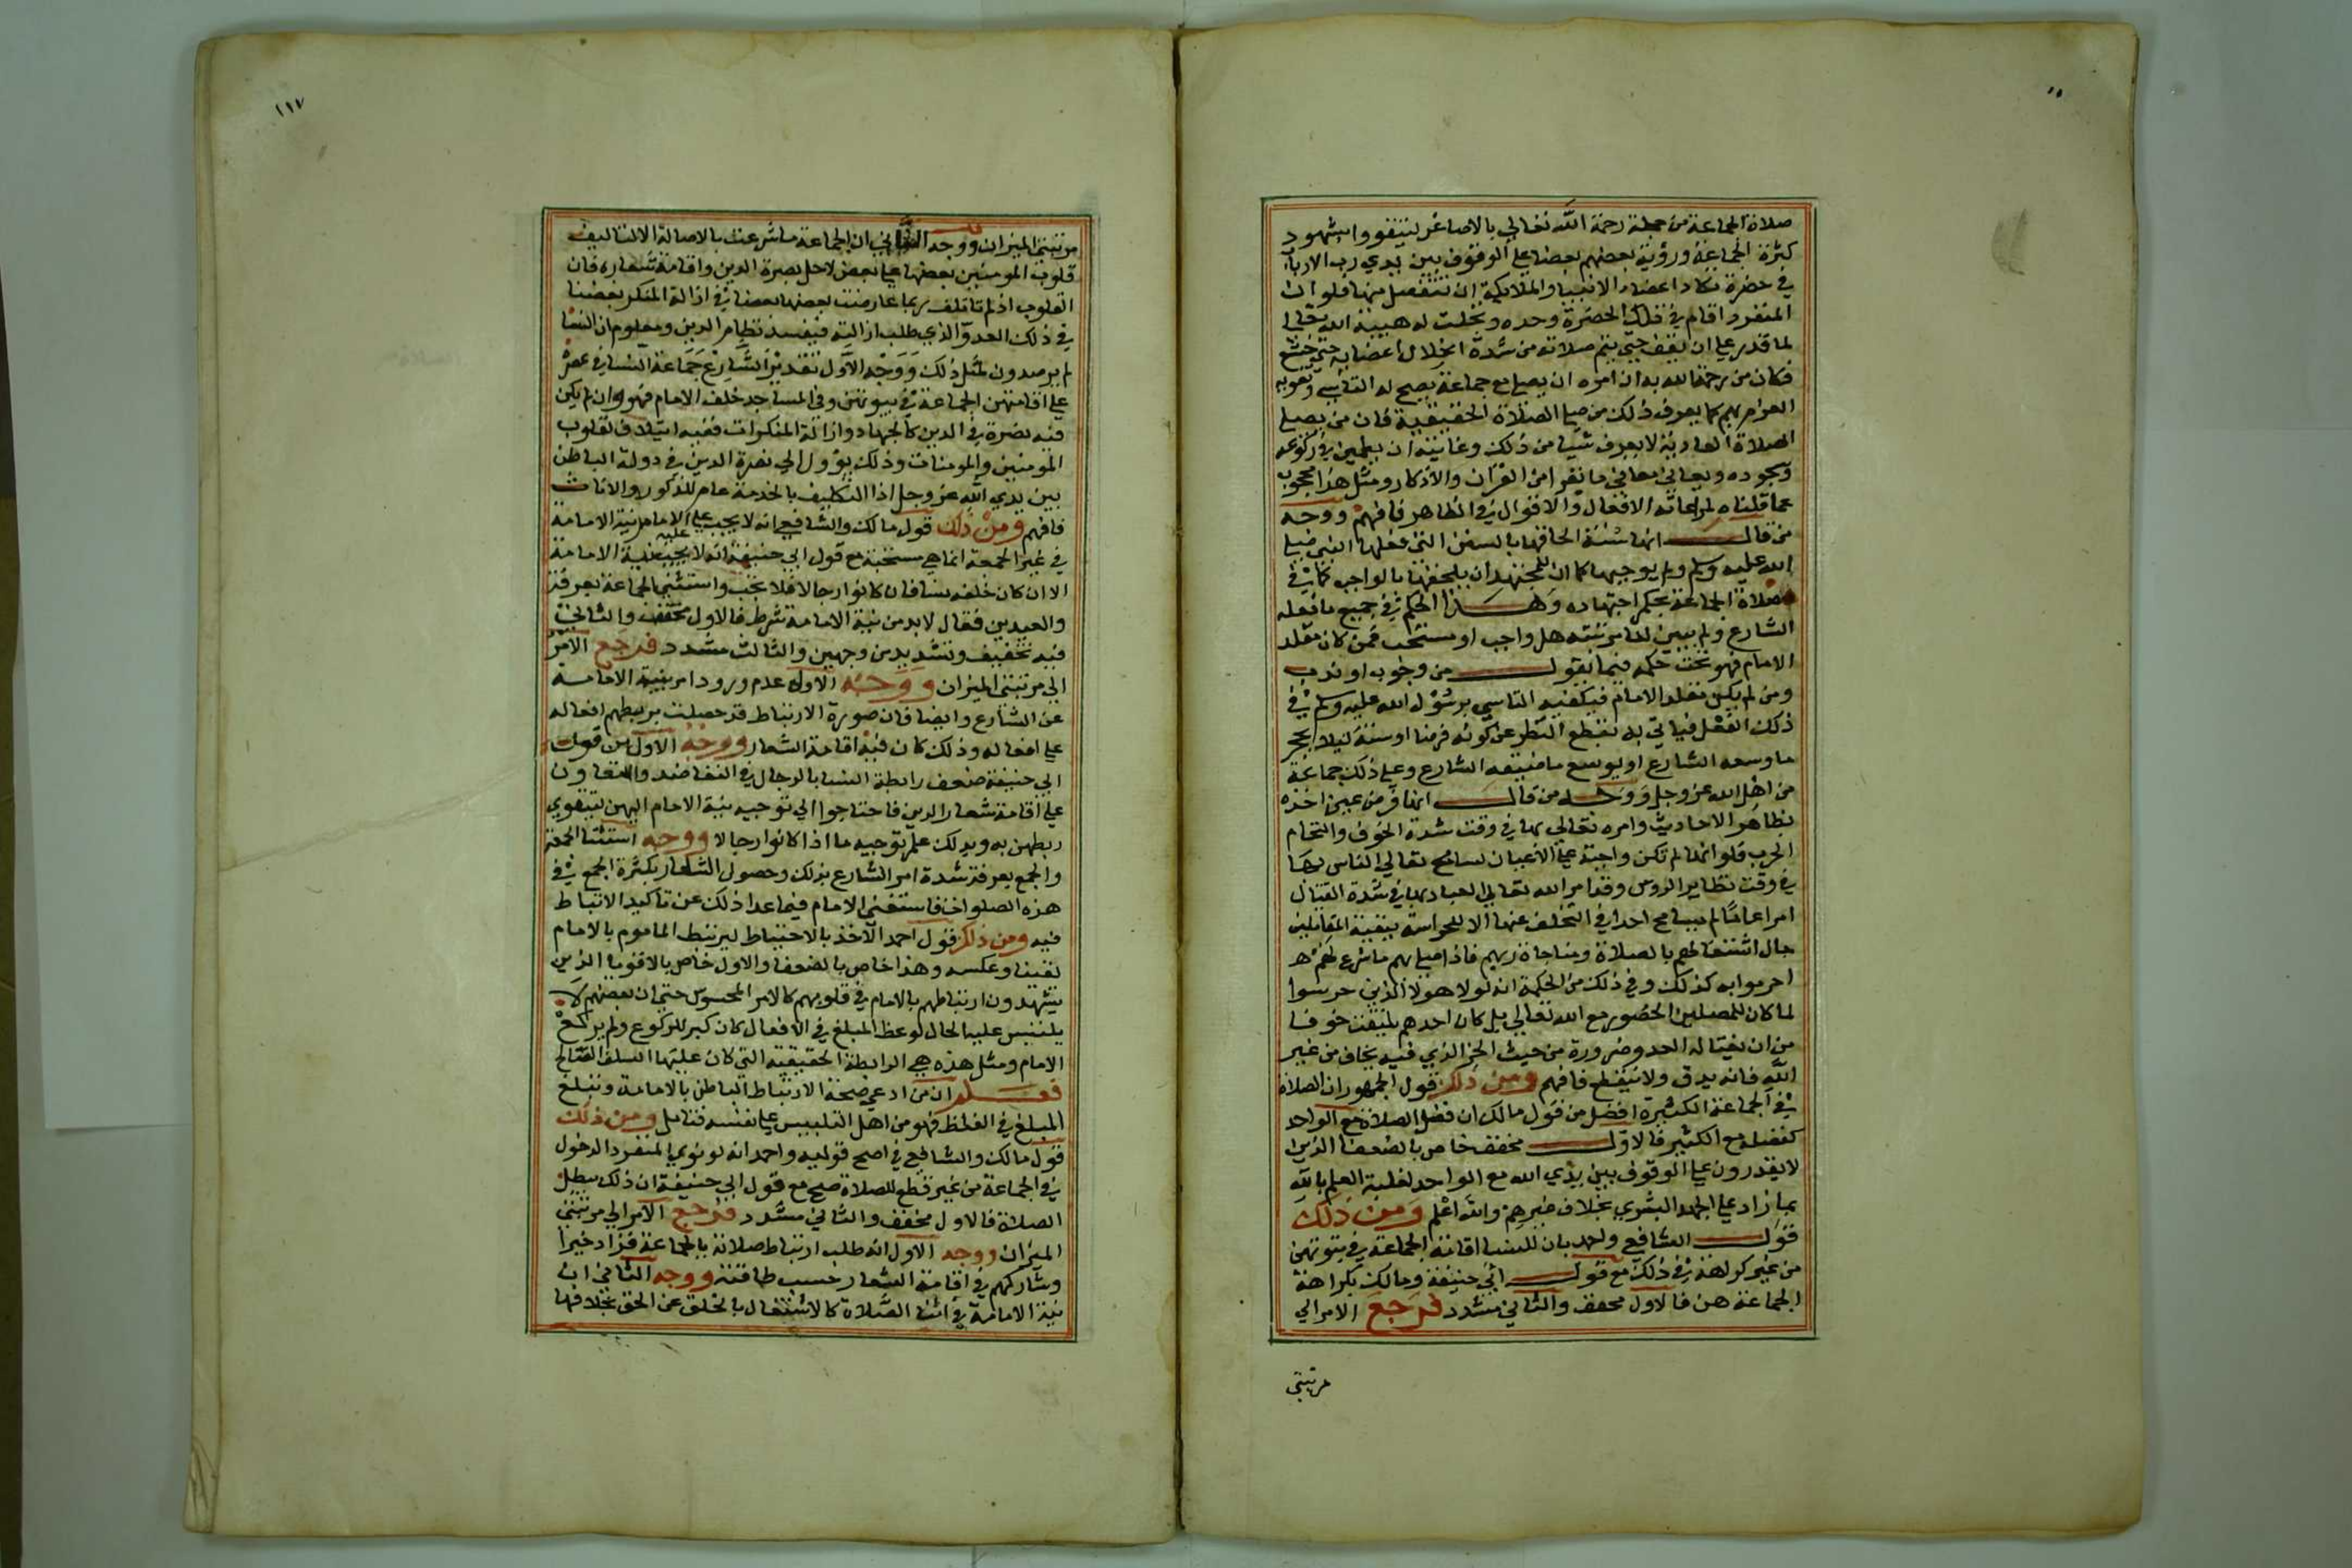 صلاة الجماعة من جملة رحمة الله تعالي بالاصاغر ليتقووا بشهود
كثرة الجماعة ورؤية بعضهم بعضا علي الوقوف بين يدي رب الارباب
في حضرة تكاد اعضاء الانبيا والملايكة ان تتفصل منها فلو ان
المنفرد اقام في تلك الحضرة وحده وتجلت له هيبة الله تعالي
لما قدر علي ان يقف حتي يتم صلاته من شدة انحلال اعضايه حتي خشع
فكان من رحمة الله به ان امره ان يصلي مع جماعة يصح له التاسي
العوام بهم كما يعرف ذلك من صلي الصلاة الحقيقية فان من يصلي
الصلاة العادية لا يعرف شيا من ذلك وغايته ان يطمين في ركوعه
وسجوده ويعاني معاني ما يقرا من القران والاذكار ومثل هذا محجوب
عما قلناه لمراعاته الافعال والاقوال في الظاهر فافهم ووجه
من قال انها سنة الحاقها بالسنن التي فعلها النبي صلي
الله عليه وسلم ولم يوجبها كما ان للمجتهد ان يلحقها بالواجب كما في
صلاة الجماعة بحكم اجتهاده وهذا الحكم في جميع ما فعله
الشارع ولم يبين لنا مرتبته هل واجب او مستحب فمن كان مقلد
الامام فهو تحت حكمه فيما يقول من وجوب او ندب
ومن لم يكن مقلد الامام فيكفيه التاسي برسول الله عليه وسلم في
ذلك الفعل فياتي به بقطع النظر عن كونه فرضا او سنة ليلا يحجر
ما وسعه الشارع او يوسع ما ضيقه الشارع وعلي ذلك جماعة
من اهل الله عز وجل ووجه من قال انها فرض عين اخذه
بظاهر الاحاديث وامره تعالي بها في وقت شدة الخوف والتحام
الحرب فلو انها لم تكن واجبة علي الاعيان لسامح تعالي الناس بها
في وقت تطاير الروس وقد امر الله تعالي العباد بها في شدة القتال
امرا عاما لم يسامح احدا في التخلف عنها الا للحراسة بنفية المقاتلين
حال اشتغالهم بالصلاة ومناجاة ربهم فاذا صلي بهم ما شرع لهم
احرموا به كذلك وفي ذلك من الحكمة انه لولا هولا الذين حرسوا
لما كان للمصلين الحضور مع الله تعالي بل كان احدهم يلتفت خوفا
من ان يغتاله العدو ضرورة من حيث الجز الذي فيه يخاف من غير
الله فانه يدق ولا ينقطع فافهم ومن ذلك قول الجمهور ان الصلاة
في الجماعة الكثيرة افضل من قول مالك ان فضل الصلاة مع الواحد
كفضله مع الكثير فالاول مخفف خاص بالضعفا الذين
لا يقدرون علي الوقوف بين يدي الله مع الواحد لغلبة العلم بالله
بما زاد علي الجهد البشري بخلاف غيرهم والله اعلم ومن ذلك
قول الشافعي واحمد بان للنسا اقامة الجماعة في بيوتهن
من غير كراهة في ذلك مع قول ابي حنيفة ومالك بكراهة
الجماعة لهن فالاول مخفف والثاني مشدد فرجع الامر الي
مرتبتي
١١٧
مرتبتي الميزان ووجه الثاني ان الجماعة ما شرعت بالاصالة الا لتاليف
قلوب المومنين بعضها علي بعض لاجل نصرة الدين واقامة شعاره فان
القلوب اذ لم تاتلف ربما عارضت بعضها بعضا في ازالة المنكر بعضنا
في ذلك العدو الذي طلب ازالته فيفسد نظام الدين ومعلوم ان النسا
لم يرصدون لمثل ذلك ووجه الاول تقدير الشارع جماعة النسا في عصره
علي اقامتهن الجماعة في بيوتهن وفي المساجد خلف الامام فهو وان لم يكن
فيه نصرة في الدين كالجهاد وازالة المنكرات ففيه ايتلاف لقلوب
المومنين والمومنات وذلك يوول الي نصرة الدين في دولة الباطن
بين يدي الله عز وجل اذا التكليف بالخدمة عام للذكور والاناث
فافهم ومن ذلك قول مالك والشافعي انه لا يجب علي الامام نية الامامة
في غير الجمعة انما هي مستحبة مع قول ابي حنيفة انه لا يجب عليه نية الامامة
الا ان كان خلفه نسا فان كانوا رجالا فلا تجب واستثني الجماعة بعرفة
والعيدين فقال لا بد من نية الامامة شرط فالاول مخفف والثاني
فيه تخفيف وتشديد من وجهين والثالث مشدد فرجع الامر
الي مرتبتي الميزان ووجه الاول عدم ورود امر بنية الامامة
عن الشارع وايضا فان صورة الارتباط قد حصلت بربطهم افعاله
علي افعاله وذلك كان فيه اقامة الشعار ووجه الاول من قول
ابي حنيفة ضعف رابطة النسا بالرجال في التعاضد والتعاون
علي اقامة شعار الدين فاحتاجوا الي توجيه نية الامام اليهن لتتقوي
ربطهن به وبذلك علم توجيه ما اذا كانوا رجالا ووجه استثنا الجمعة
والجمع بعرفة شدة امر الشارع بذلك وحصول الشعار بكثرة الجمع في
هذه الصلوات فاستغني الامام فيما عدا ذلك عن تاكيد الارتباط
فيه ومن ذلك قول احمد الاخذ بالاحتياط ليرتبط الماموم بالامام
لفينا وعكسه وهذا خاص بالضعفا والاول خاص بالاقويا الذين
يشهدون ارتباطهم بالامام في قلوبهم كالامر المحسوس حتي ان بعضهم لا
يلتبس عليه الحال لو غلط المبلغ في الافعال كان كبر للركوع ولم يركع
الامام ومثل هذه هي الرابطة الحقيقية التي كان عليها السلف الصالح
فعلم ان من ادعي صحة الارتباط الباطن بالامامة وتبلغ
المبلغ في الغلط فهو من اهل التلبيس علي نفسه فتامل ومن ذلك
قول مالك والشافعي في اصح قوليه واحمد انه لو نوي المنفرد الدخول
في الجماعة من غير قطع للصلاة صح مع قول ابي حنيفة ان ذلك يبطل
الصلاة فالاول مخفف والثاني مشدد فرجع الامر الي مرتبتي
الميزان ووجه الاول انه طلب ارتباط صلاته بالجماعة فزاد خيرا
وشاركهم في اقامة الشعار حسب طاقته ووجه الثاني ان
نية الامامة في اثنا الصلاة كالاشتغال بالخلق عن الحق بخلافها